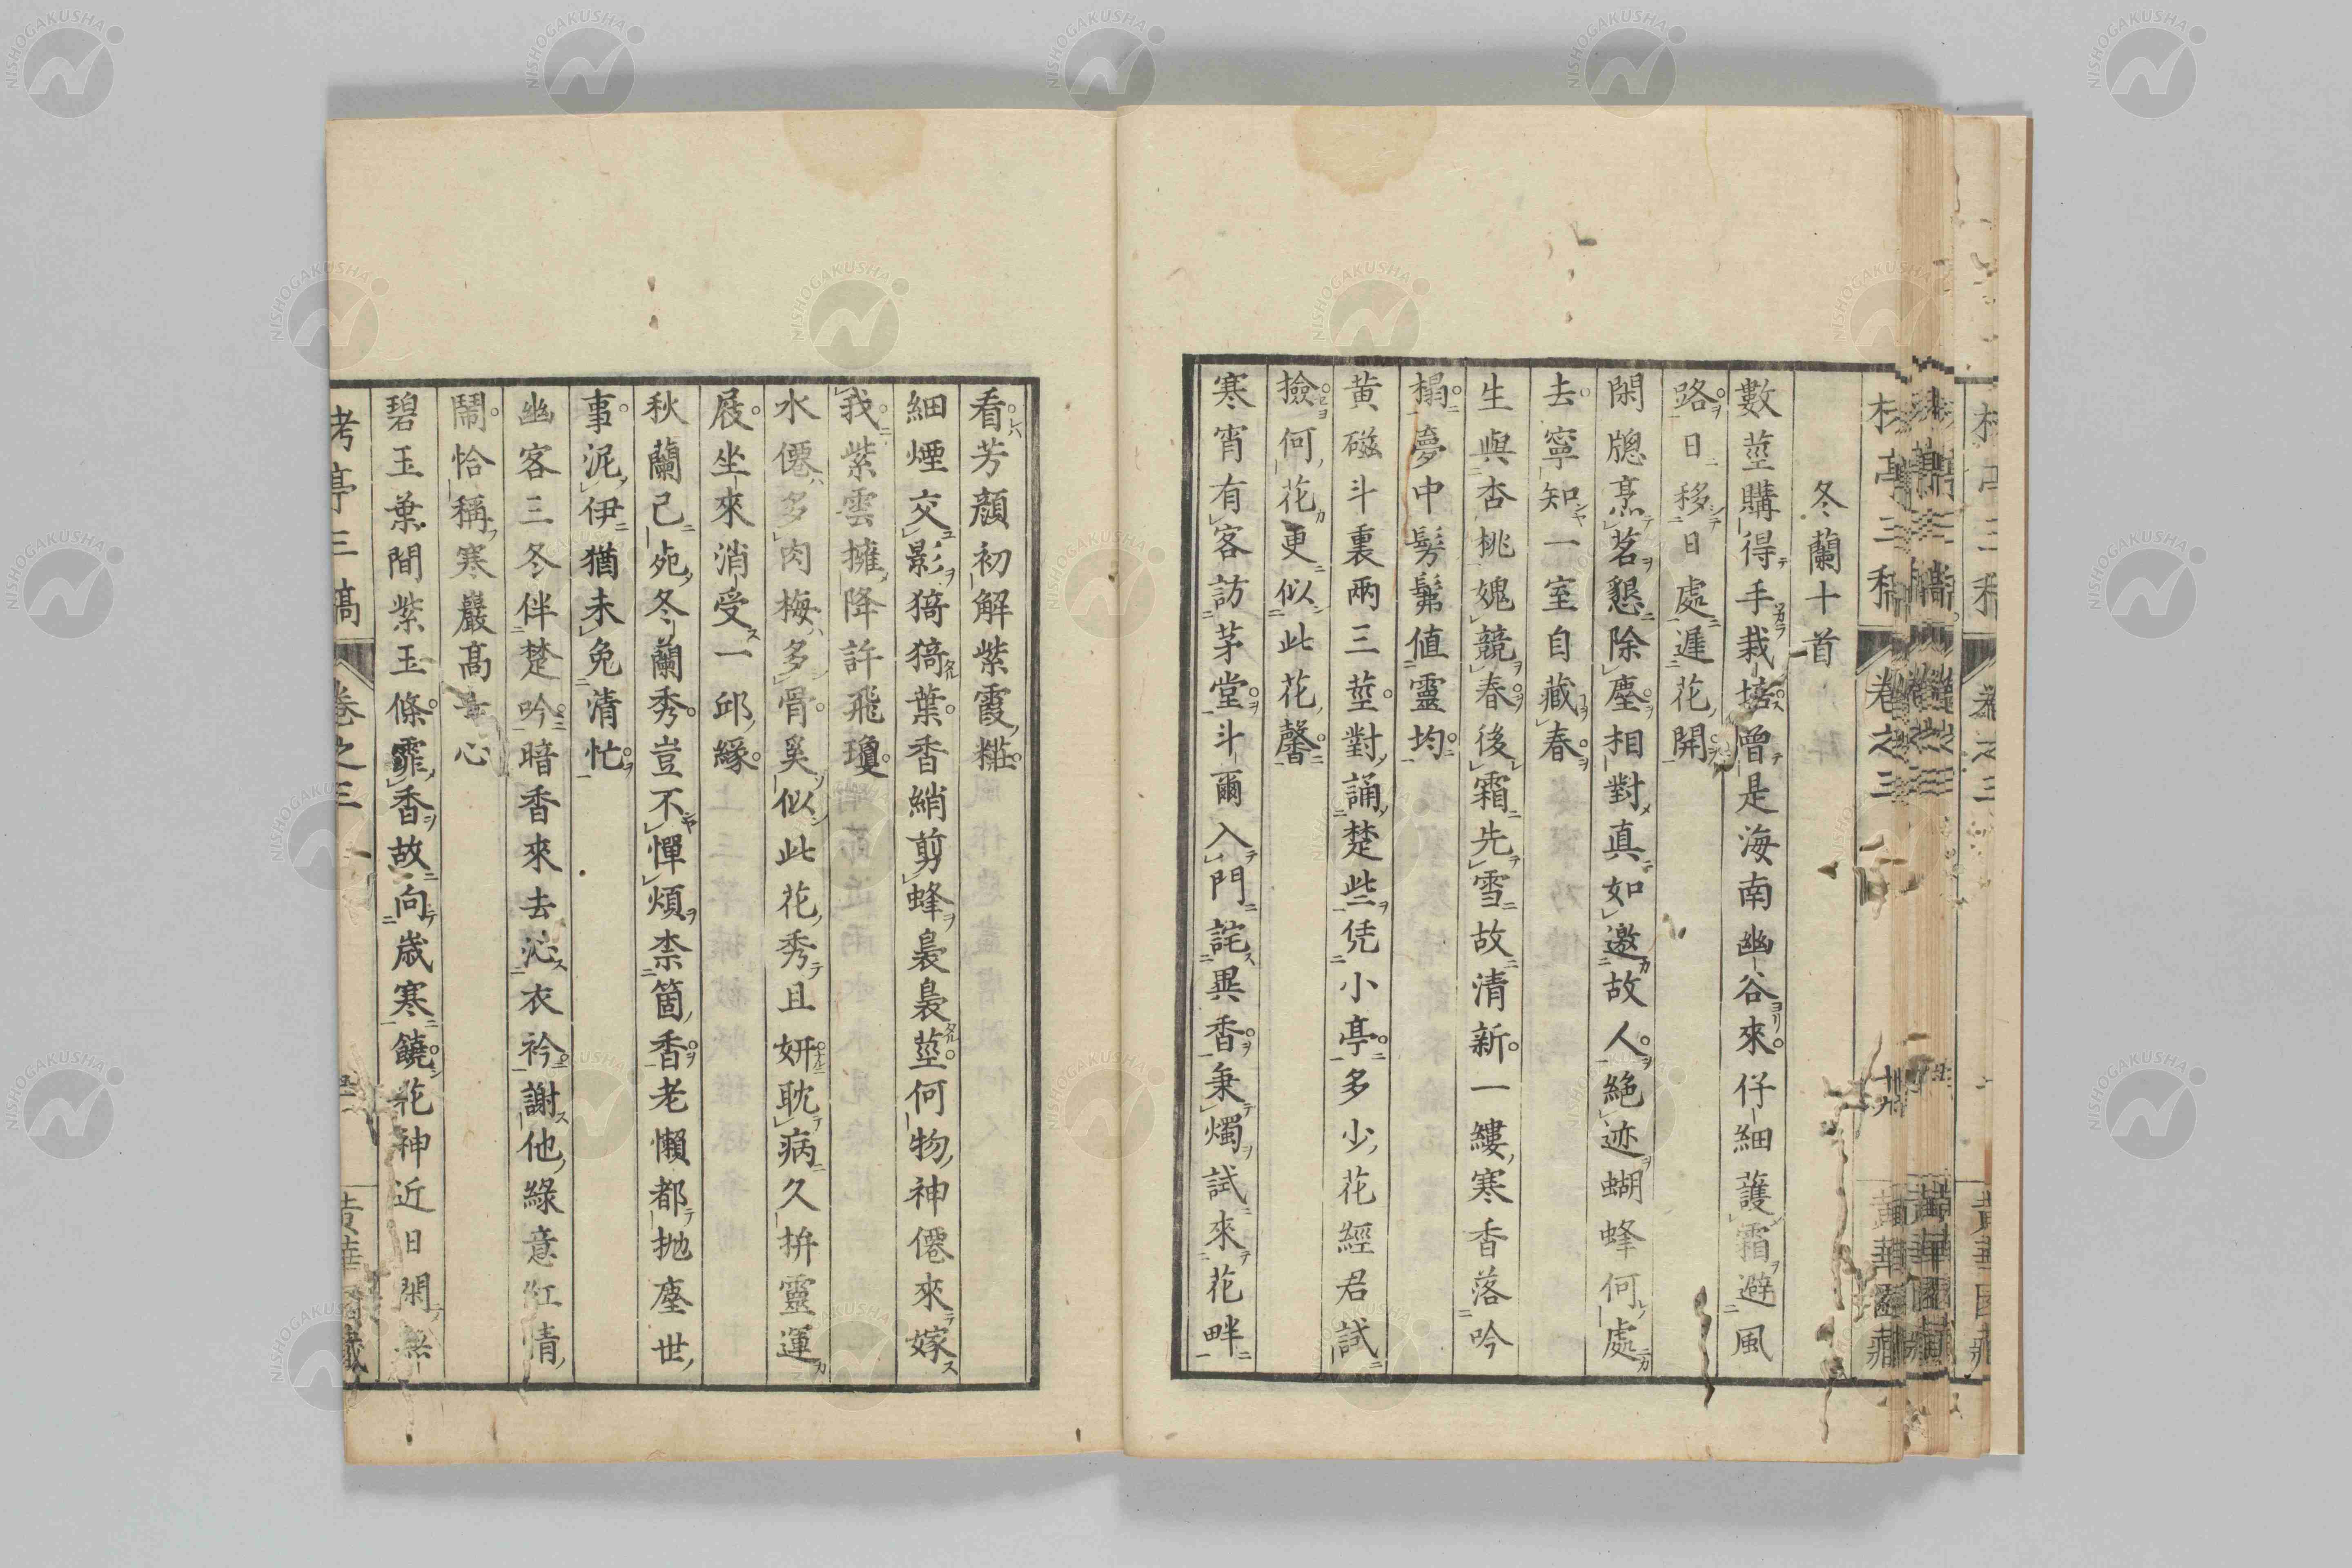 冬蘭十首
數莖購得手栽培曾是海南幽谷來仔細護霜避風
路日移日處遲花開
閑牕烹茗懇除塵相對真如邀故人絕迹蝴蜂何處
去寧知一室自藏春
生與杏桃媿競春後霜先雪故清新一縷寒香落吟
榻夢中髣髴値靈均
黄磁斗裏兩三莖對誦楚些凭小亭多少花經君試
撿何花更似此花馨
寒宵有客訪茅堂斗爾入門詫異香秉燭試來花畔
卷之三
黄華園藏
看芳顔初解紫霞糚
細煙交影猗猗葉香綃剪蜂裊裊莖何物神僊來嫁
我紫雲擁降許飛瓊
水僊多肉梅多骨奚似此花秀且妍耽病久拚靈運
屐坐來消受一邱緣
秋蘭已死冬蘭秀豈不憚煩柰箇香老懶都抛塵世
事泥伊猶未免清忙
幽客三冬伴楚吟暗香來去沁衣衿謝他綠意紅情
鬧恰稱寒巖高士心
碧玉葉間紫玉條霏香故向歳寒饒花神近日閑無
卷之三